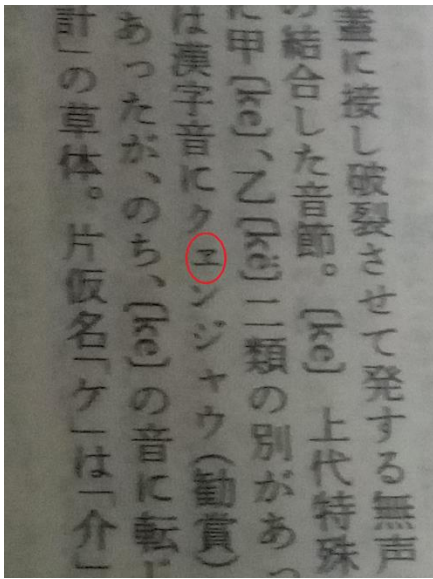 蓋に接し破裂させて発する無声
の結合した音節。〔ke〕 上代特殊
に甲〔ke〕、乙〔kë〕二類の別があっ
は漢字音にクヱンジャウ(勧賞)
あったが、のち、〔ke〕の音に転じ
計」の草体。片仮名「ケ」は「介」